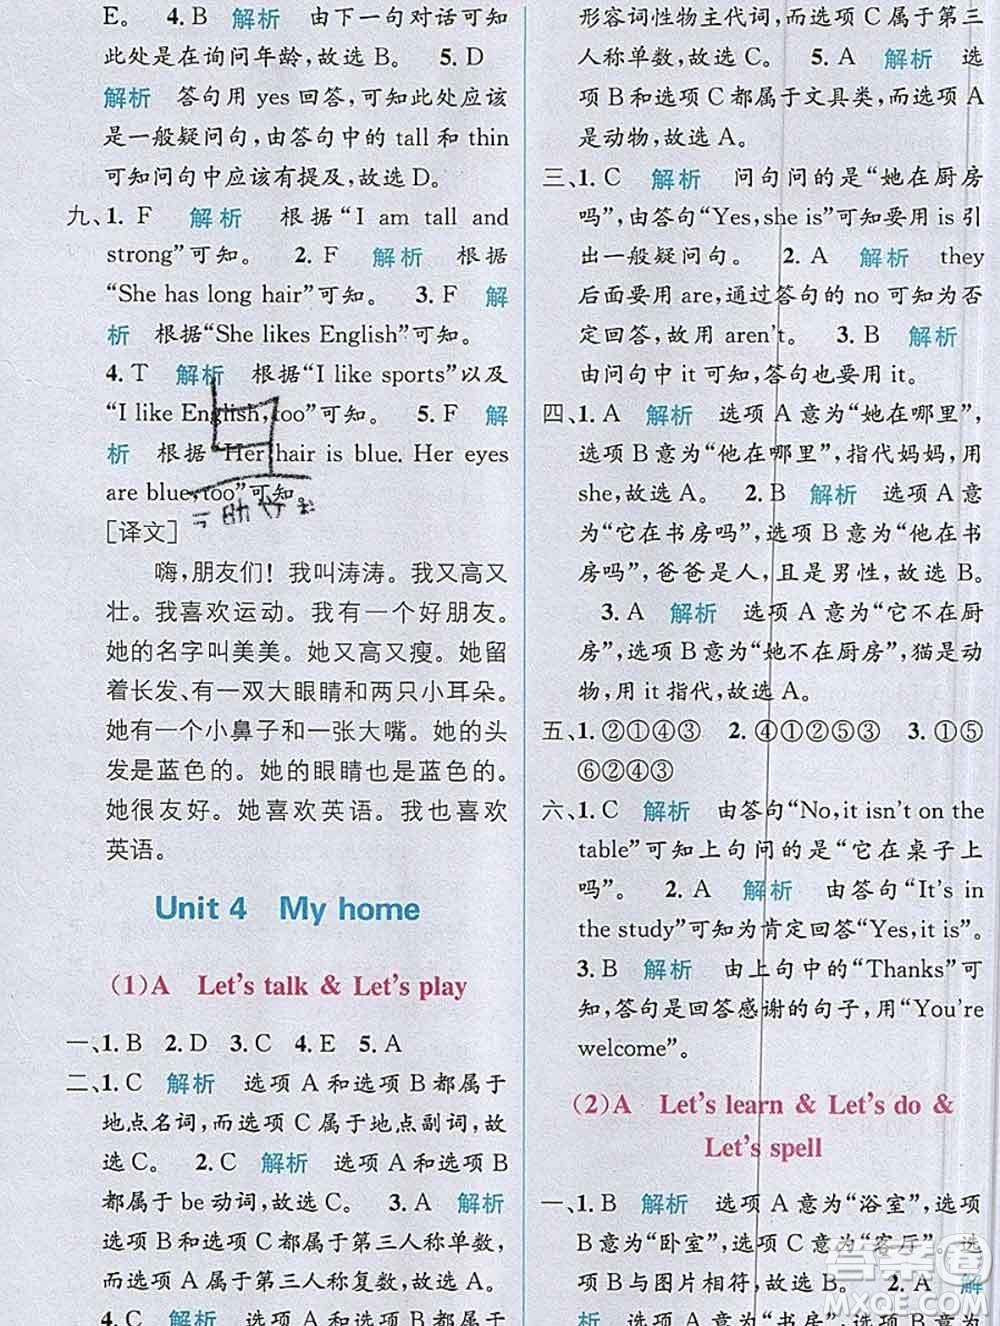 E。 4. B 解析 由下一句对话可知
此处是在询问年龄,故选 B。 5. D
解析 答句用 yes 回答,可知此处应该
是一般疑问句,由答句中的 tall 和 thin
可知问句中应该有提及,故选 D。
九、1. F 解析 根据“I am tall and
strong”可知。 2. F 解析 根据
“She has long hair”可知。 3. F 解
析 根据“She likes English”可知。
4. T 解析 根据“I like sports”以及
“I like English, too”可知。 5. F 解
析 根据“Her hair is blue. Her eyes
are blue, too”可知。
[译文]
嗨,朋友们!我叫涛涛。我又高又
壮。我喜欢运动。我有一个好朋友。
她的名字叫美美。她又高又瘦。她留
着长发、有一双大眼睛和两只小耳朵。
她有一个小鼻子和一张大嘴。她的头
发是蓝色的。她的眼睛也是蓝色的。
她很友好。她喜欢英语。我也喜欢
英语。
Unit 4 My home
(1)A Let's talk & Let's play
一、1. B 2. D 3. C 4. E 5. A
二、1. C 解析 选项 A 和选项 B 都属于
地点名词,而选项 C 属于地点副词,故
选 C。 2. C 解析 选项 A 和选项 B
都属于 be 动词,故选 C。 3. A 解析
选项 B 和选项 C 都属于第三人称单数,
而选项 A 属于第三人称复数,故选 A。
4. C 解析 选项 A 和选项 B 都属于
形容词性物主代词,而选项 C 属于第三
人称单数,故选 C。 5. A 解析 选
项 B 和选项 C 都属于文具类,而选项 A
是动物,故选 A。
三、1. C 解析 问句问的是“她在厨房
吗”,由答句“Yes, she is”可知要用 is 引
出一般疑问句。 2. A 解析 they
后面要用 are,通过答句的 no 可知为否
定回答,故用 aren't。 3. B 解析
由问句中 it 可知,答句也要用 it。
四、1. A 解析 选项 A 意为“她在哪里”,
选项 B 意为“他在哪里”,指代妈妈,用
she,故选 A。 2. B 解析 选项 A 意
为“它在书房吗”,选项 B 意为“他在书
房吗”,爸爸是人,且是男性,故选 B。
3. A 解析 选项 A 意为“它不在厨
房”,选项 B 意为“她不在厨房”,猫是动
物,用 it 指代,故选 A。
五、1. ②①④③ 2. ④①②⑤③ 3. ①⑤
⑥②④③
六、1. C 解析 由答句“No, it isn't on the
table”可知上句问的是“它在桌子上
吗”。 2. A 解析 由答句“It's in
the study”可知为肯定回答“Yes, it is”。
3. B 解析 由上句中的“Thanks”可
知,答句是回答感谢的句子,用“You're
welcome”。
(2)A Let's learn & Let's do &
Let's spell
一、1. B 解析 选项 A 意为“浴室”,选项
B 意为“卧室”,选项 C 意为“客厅”,选
项 B 与图片相符,故选 B。 2. A 解
析 选项 A 意为“书房”,选项 B 意为
答案圈
MXQE.COM